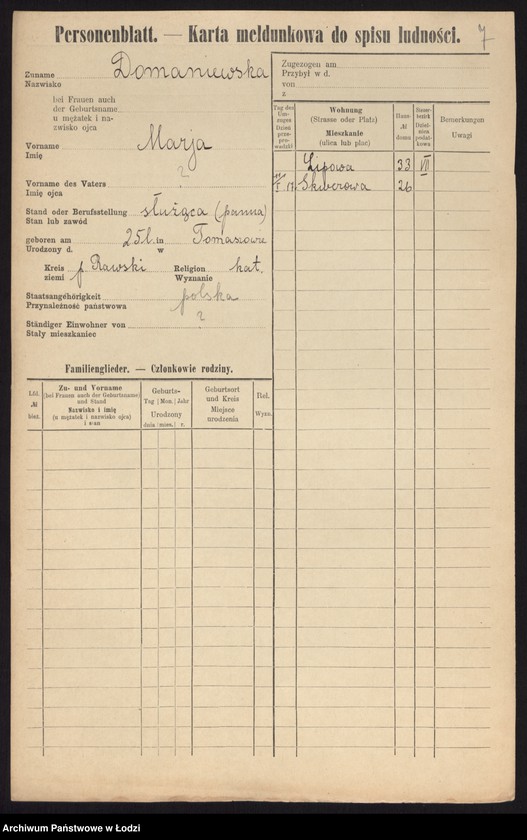 Personenblatt. — Karta meldunkowa do spisu ludności. 7
Zuname Domaniewska
Nazwisko
bei Frauen auch
der Geburtsname
u mężatek i na-
zwisko ojca
Vorname Marja
Imię
Vorname des Vaters ?
Imię ojca
Stand oder Berufsstellung służąca (panna)
Stan lub zawód
geboren am 25 l. in Tomaszowie
Urodzony d. w
Kreis p. Rawski Religion kat.
ziemi Wyznanie
Staatsangehörigkeit polska
Przynależność państwowa
Ständiger Einwohner von ?
Stały mieszkaniec
Familienglieder. — Członkowie rodziny.
Lfd. № bież.
Zu- und Vorname
(bei Frauen auch der Geburtsname)
und Stand
Nazwisko i imię
(u mężatek i nazwisko ojca)
i stan
Geburts-
Tag Mon. Jahr
Urodzony
dnia mies. r.
Geburtsort
und Kreis
Miejsce
urodzenia
Rel.
Wyzn.
Zugezogen am
Przybył w d.
von
z
Tag des
Um-
zuges
Dzień
prze-
prowadzki
Wohnung
(Strasse oder Platz)
Mieszkanie
(ulica lub plac)
Haus
№
domu
Steuer-
bezirk
Dziel-
nica
podat-
kowa
Bemerkungen
Uwagi
Lipowa 33 VII
17 Skwerowa 26
Archiwum Państwowe w Łodzi